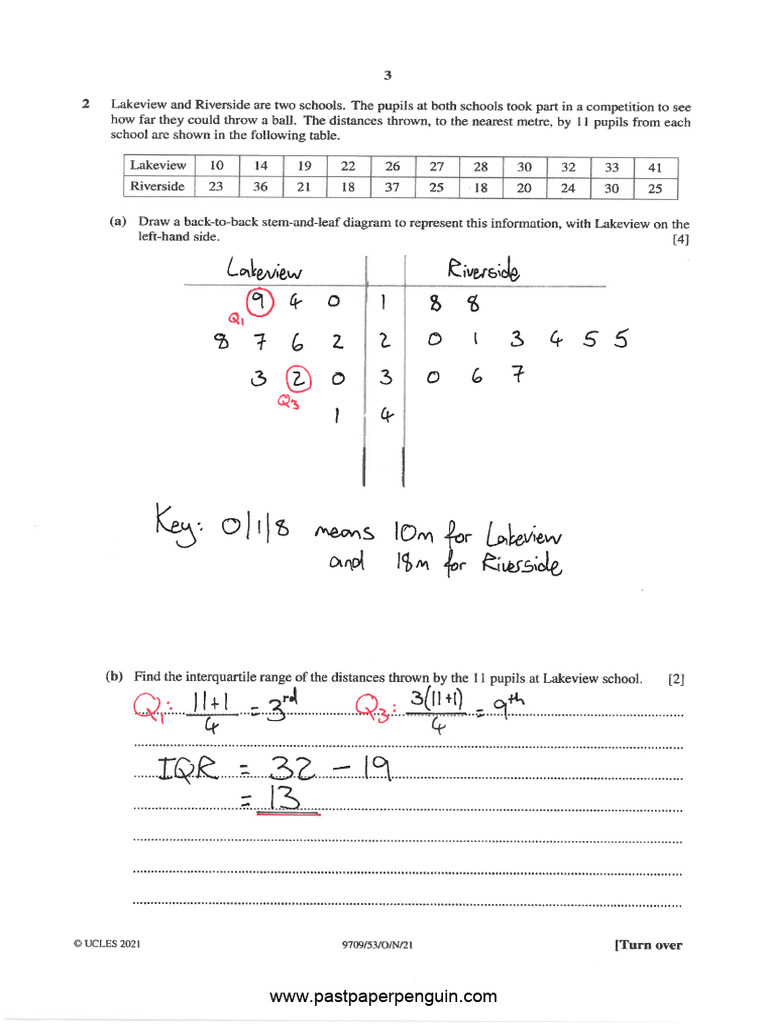 3
2 Lakeview and Riverside are two schools. The pupils at both schools took part in a competition to see
how far they could throw a ball. The distances thrown, to the nearest metre, by 11 pupils from each
school are shown in the following table.
Lakeview 10 14 19 22 26 27 28 30 32 33 41
Riverside 23 36 21 18 37 25 18 20 24 30 25
(a) Draw a back-to-back stem-and-leaf diagram to represent this information, with Lakeview on the
left-hand side. [4]
Lakeview Riverside
9 4 0 1 8 8
Q1
8 7 6 2 2 0 1 3 4 5 5
3 2 0 3 0 6 7
Q3
1 4
Key: 0/1/8 means 10m for Lakeview
and 18m for Riverside
(b) Find the interquartile range of the distances thrown by the 11 pupils at Lakeview school. [2]
Q1: 11+1/4 = 3rd Q3: 3(11+1)/4 = 9th
IQR = 32 - 19
= 13
© UCLES 2021 9709/53/O/N/21 [Turn over
www.pastpaperpenguin.com